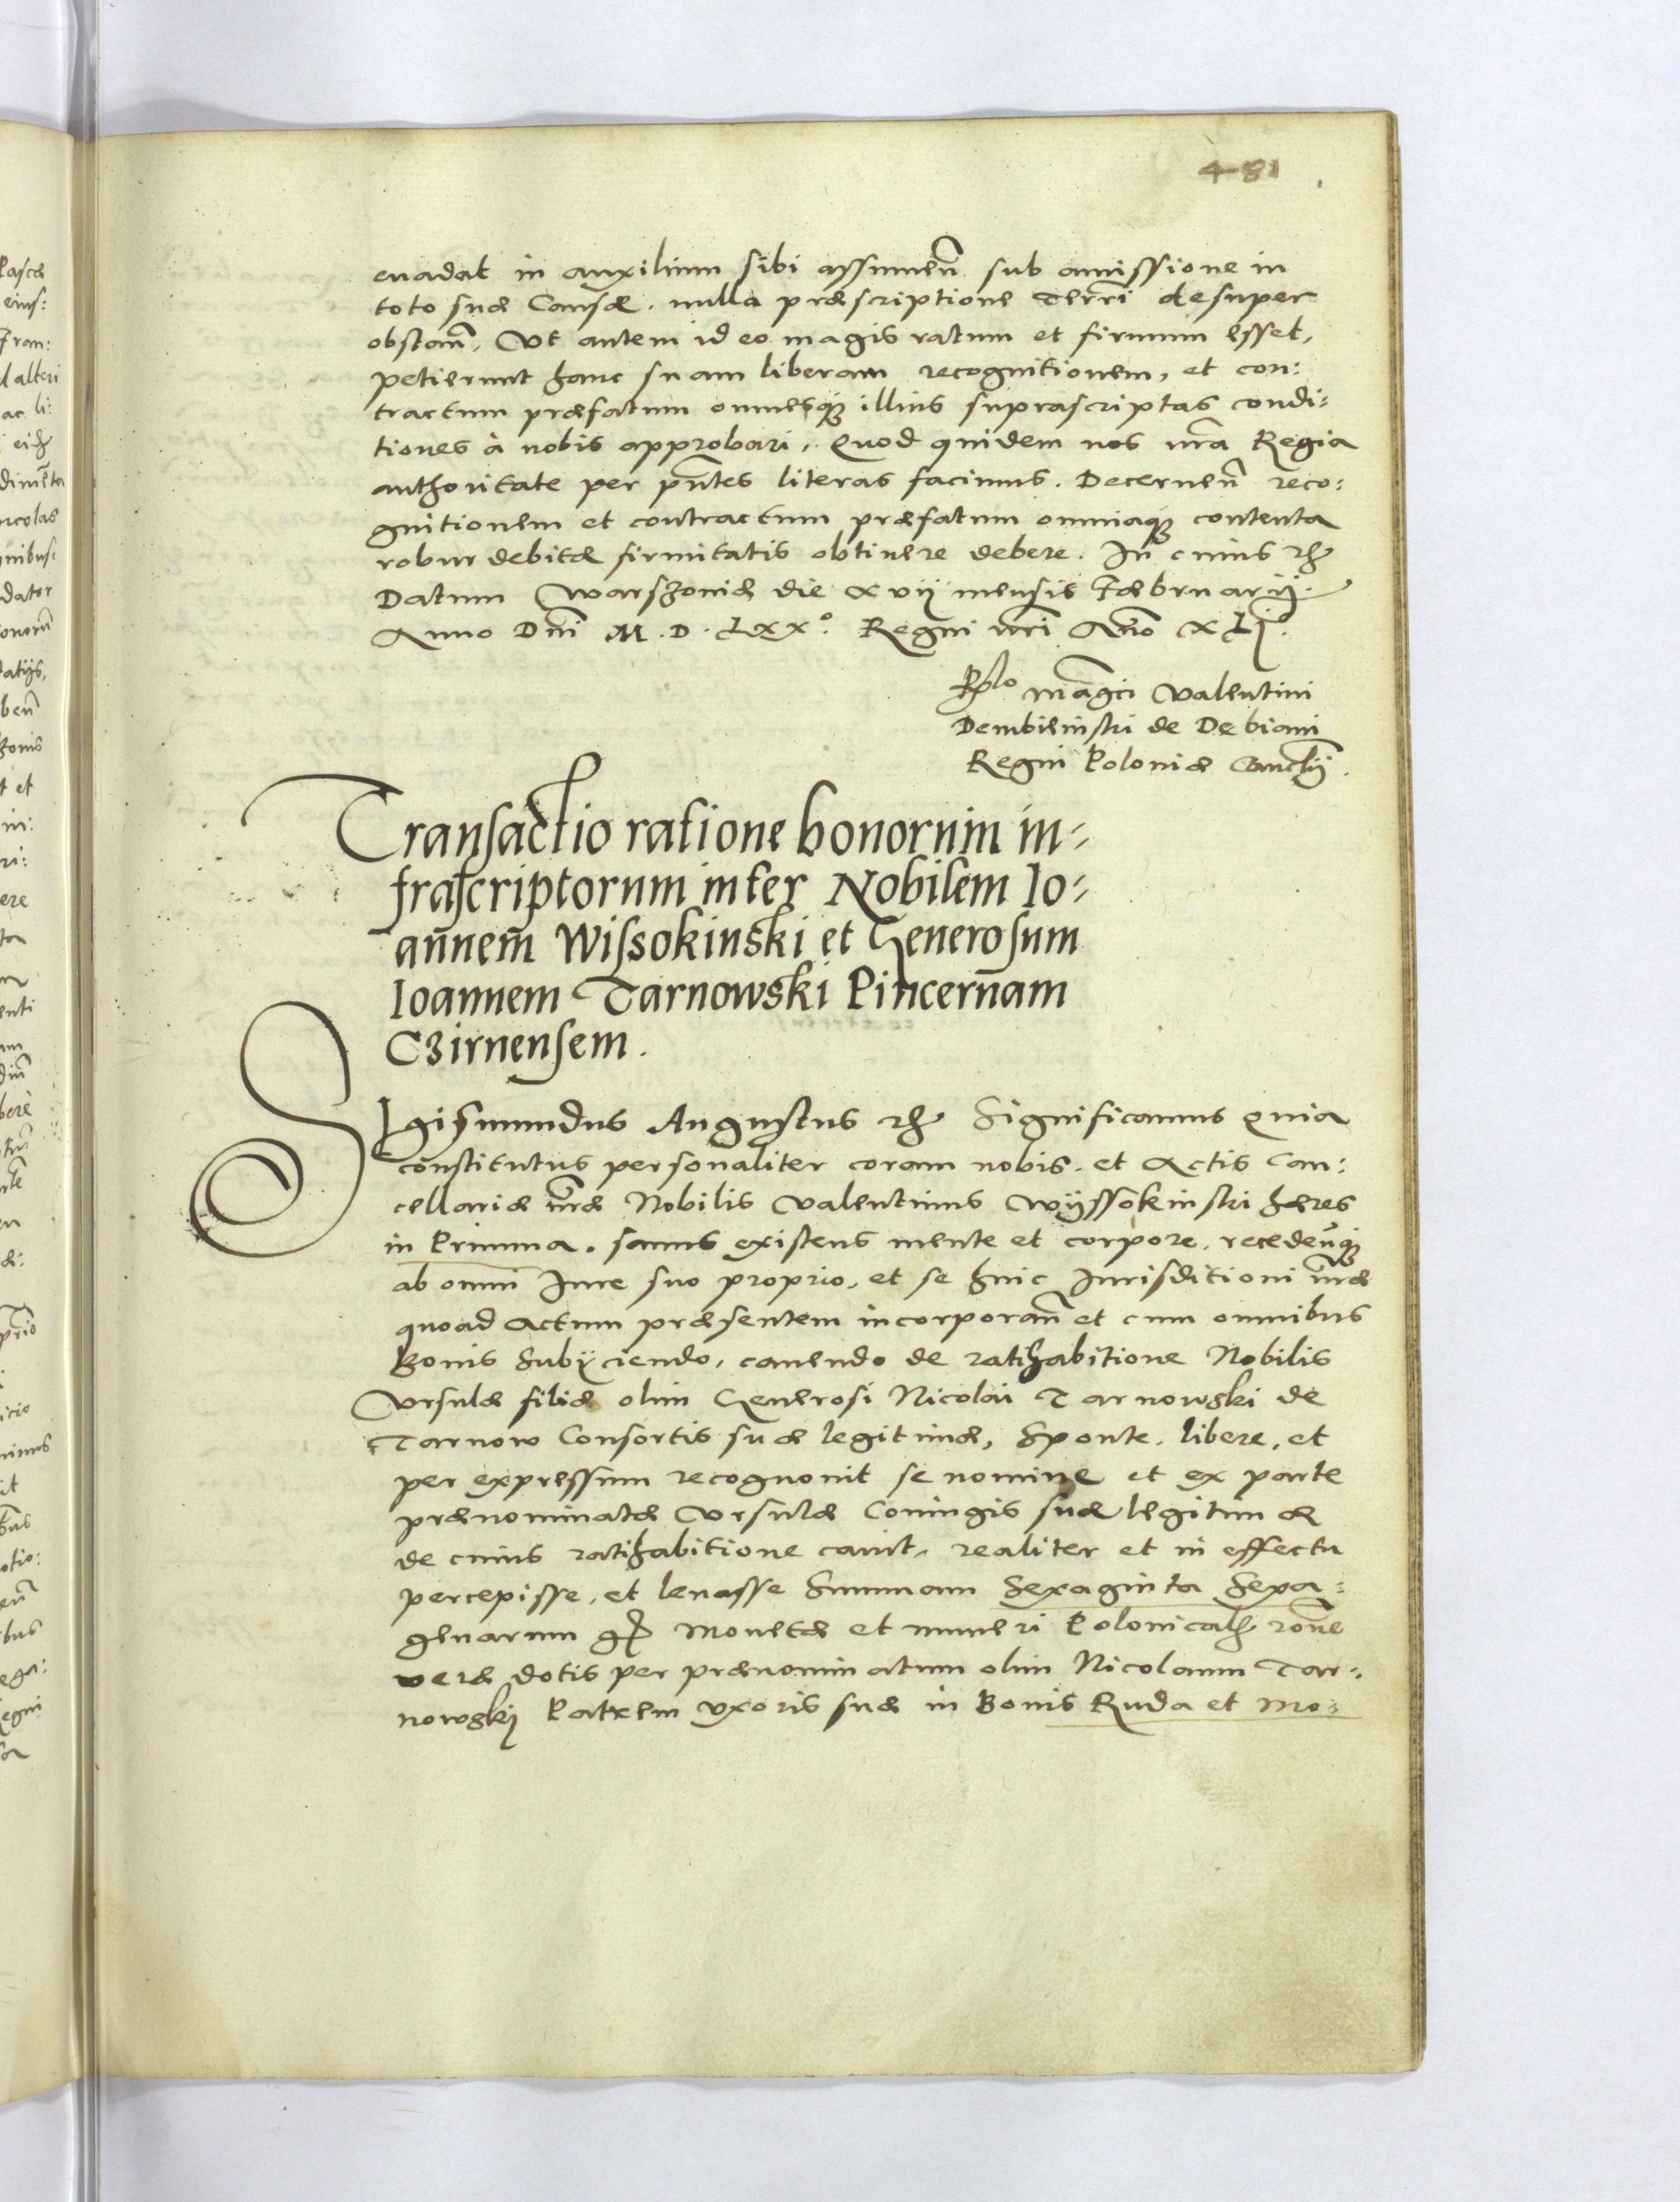 481
euadat in auxilium sibi assumeñ sub amissione in
toto suæ Causæ. nulla præscriptione Terrī desuper
obstañ. Vt autem id eo magis ratum et firmum esset,
petierunt hanc suam liberam recognitionem, et con:
tractum præfatum omnesq illius suprascriptas condi:
tiones à nobis approbari. Quod quidem nos nr̄a Regia
authoritate per pñtes literas facimus. Decerneñ reco:
gnitionem et contractum præfatum omniaq contenta
robur debitæ firmitatis obtinere debere. In cuius
Datum Warszouiæ die XVII mensis Fæbruarij.
Anno Dñi M.D.LXX.° Regni nr̄i Año XLI°.
Rlo Magci Valentini
Dembienski de Debiani
Regni Poloniæ Cancllij.
Transactio ratione bonorum in-
frascriptorum inter Nobilem Io-
añnem Wissokinski et Generosum
Ioannem Tarnowski Pincernam
Czirnensem.
SIgismundus Augustus Significamus Quia
constitutus personaliter coram nobis. et Actis Can:
cellariæ nr̄æ Nobilis Valentinus Wyssokinski hæres
in Krimna. sanus existens mente et corpore. recedeñq
ab omni Iure suo proprio, et se huic Iurisditioni nr̄æ
quoad Actum præsentem incorporañ et cum omnibus
Bonis Subijciendo, cauendo de ratihabitione Nobilis
Vrsulæ filiæ olim Generosi Nicolai Tarnowski de
Tarnow Consortis suæ legitimæ, Sponte. libere, et
per expressum recognouit se nomine et ex parte
prænominatæ Vrsulæ Coniugis suæ legitimæ
de cuius ratihabitione cauit, realiter et in effectu
percepisse, et leuasse Summam Sexaginta Sexa:
genarum gr Monetæ et numeri Polonical roñe
veræ dotis per prænominatum olim Nicolaum Tar:
nowskj Patrem vxoris suæ in Bonis Ruda et Mo: